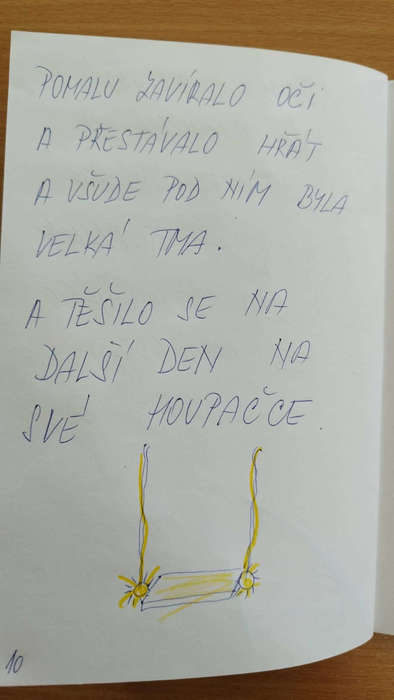 POMALU ZAVÍRALO OČI
A PŘESTÁVALO HŘÁT
A VŠUDE POD NÍM BYLA
VELKÁ TMA.
A TĚŠILO SE NA
DALŠÍ DEN NA
SVÉ HOUPAČCE.
10